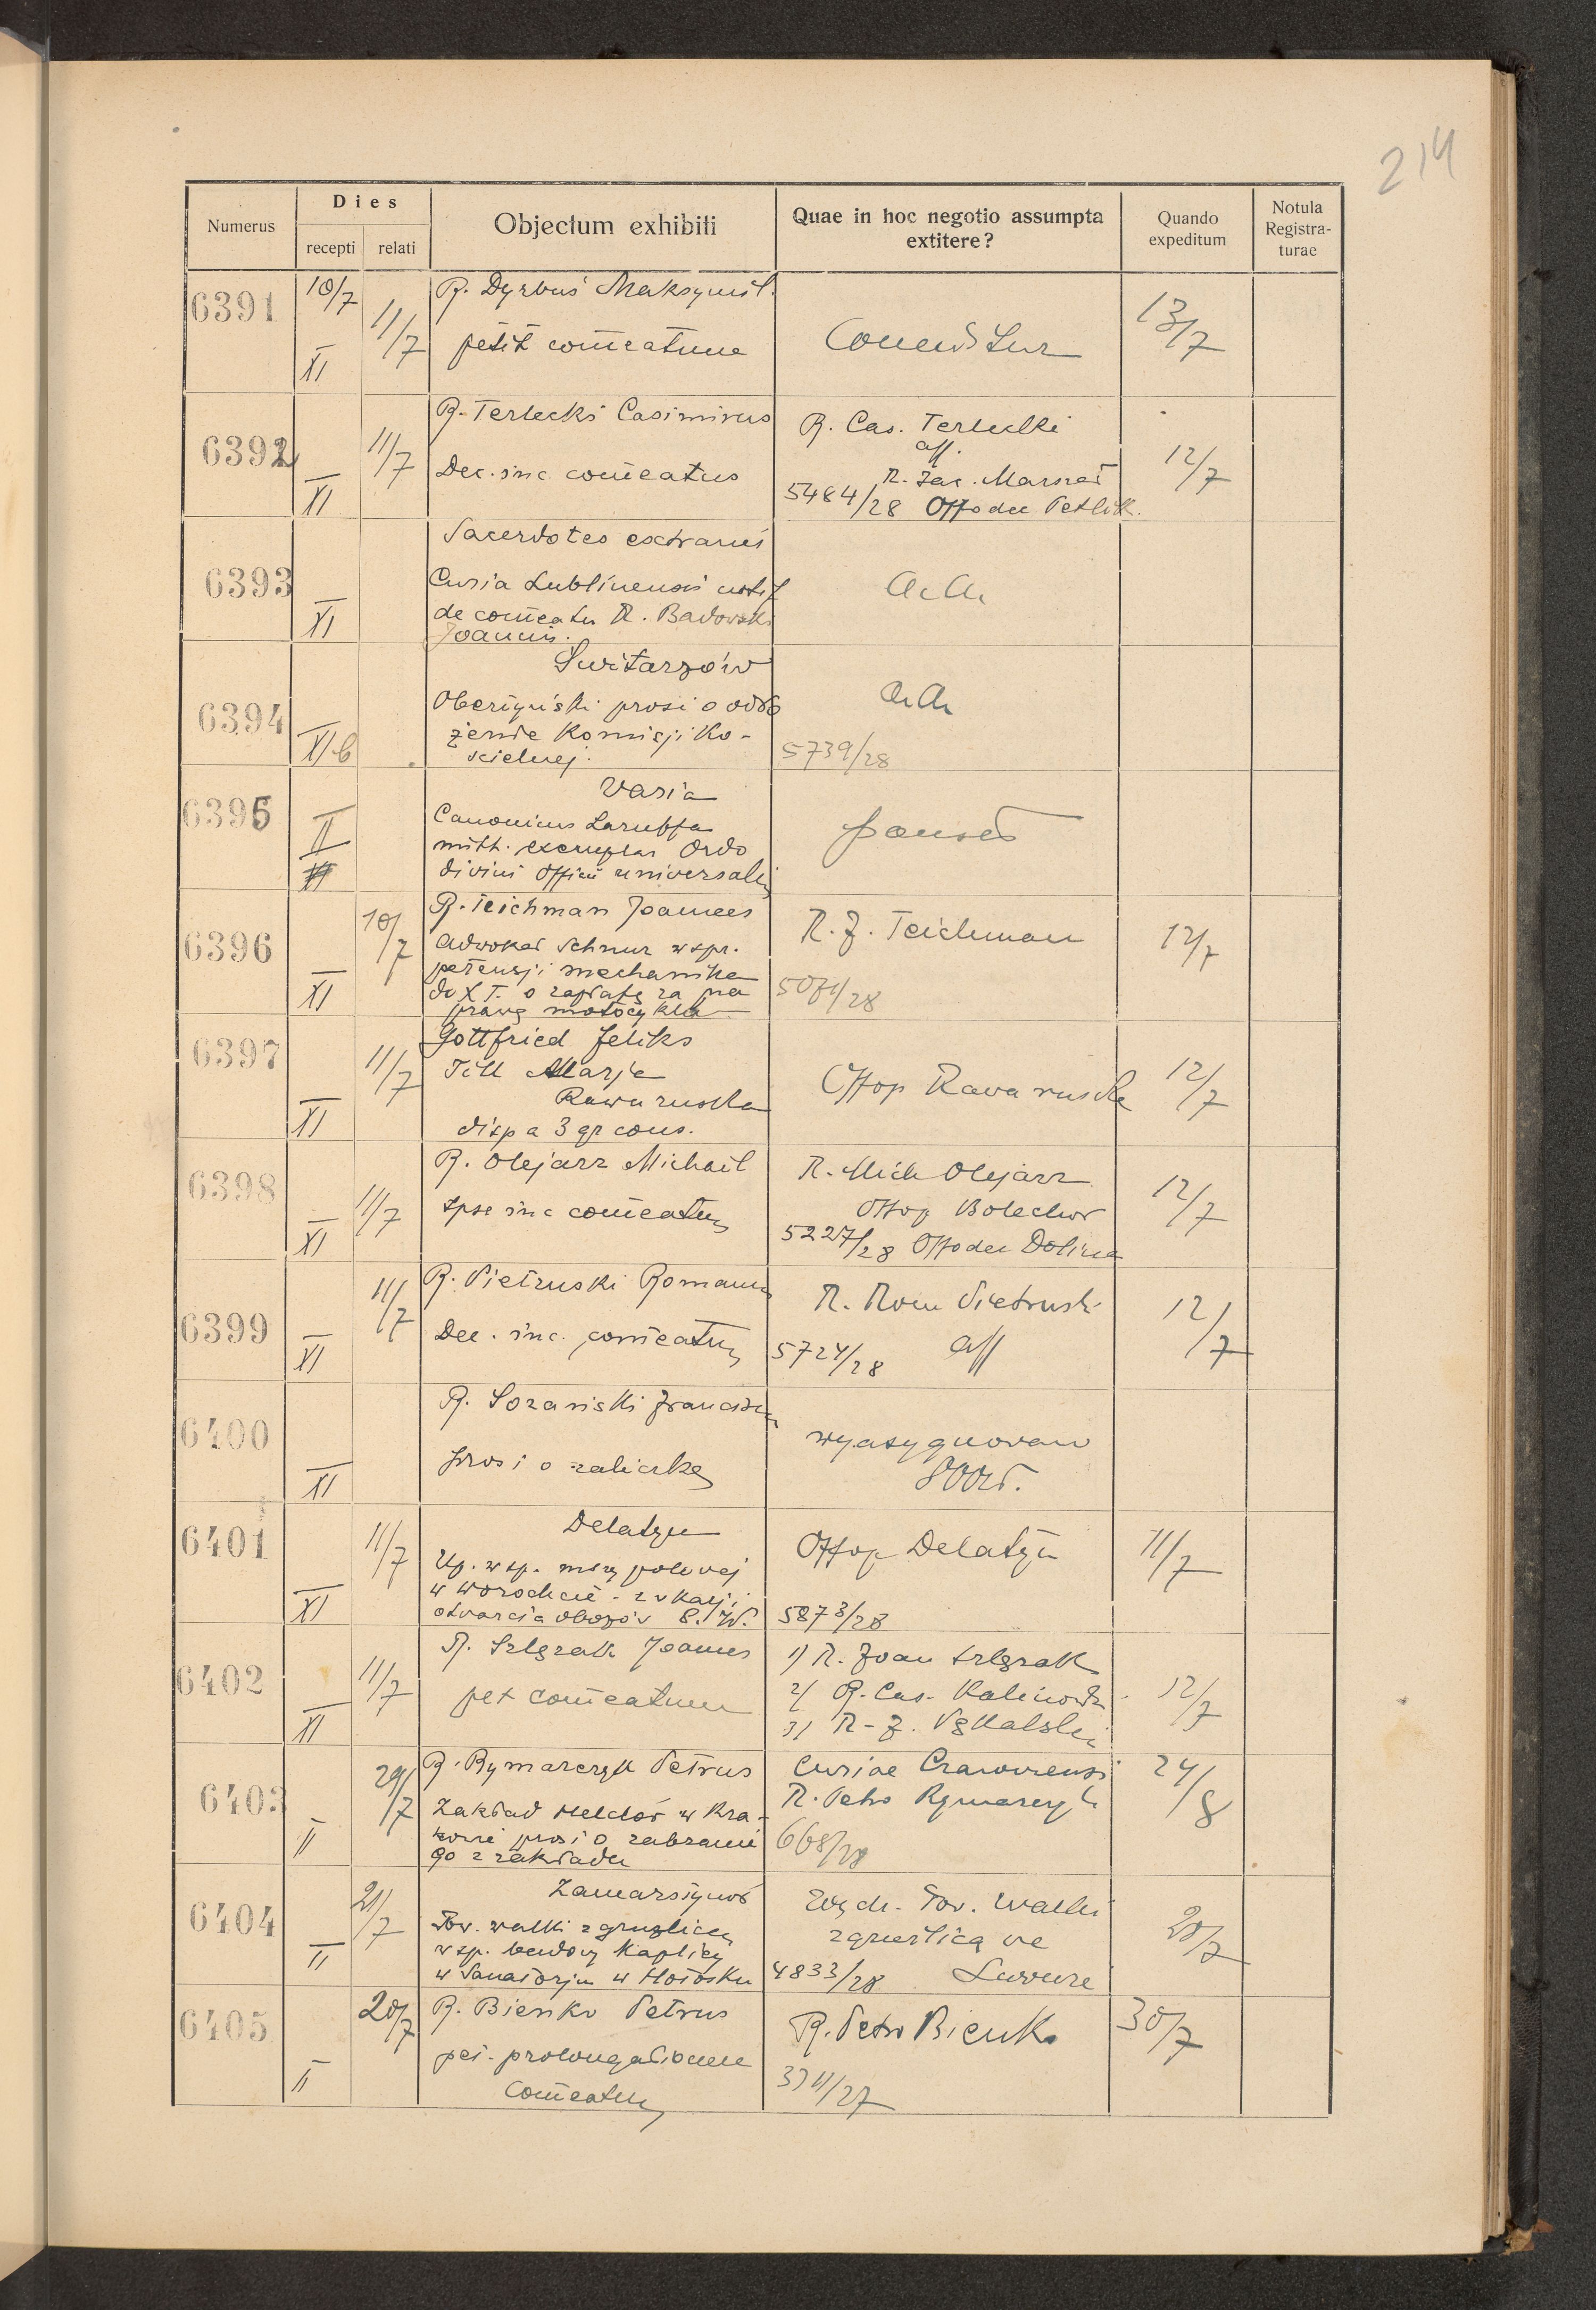 214
Numerus
Dies
recepti
relati
Objectum exhibiti
Quae in hoc negotio assumpta
extitere?
Quando
expeditum
Notula
Registra-
turae
6391
10/7
XI
11/7
R. Dyrbuś Maksymil.
petit com̄eatum
13/7
6392
XI
11/7
R. Terlecki Casimirus
Dec. inc. com̄eatus
R. Cas. Terlecki
aff.
5484/28 Offo dec
12/7
6393
XI
Sacerdotes extranei
Curia Lublinensis notif
de com̄eatu R. Badowski
Joannis.
a. a.
6394
XI b
Switarzów
prosi o odło
żenie Komisji Ko-
scielnej.
a. a.
5739/28
6395
II
XI
Varia
Canonicus
mitt. exemplar Ordo
divini Officii universalis
6396
XI
10/7
R. Teichman Joannes
adwokat Schnur w spr.
petensji mechanika
do X T. o zapłatę za na
prawę motocykla
R. J. Teichman
12/7
6397
XI
11/7
Gottfried Feliks
Till Marja
Rawa ruska
disp a 3 gr cons.
Offop Rawa ruska
12/7
6398
XI
11/7
R. Olejarz Michael
Ipse inc com̄eatum
R. Mich Olejarz
Offop Bolechów
5227/28 Offo dec Dolina
12/7
6399
XI
11/7
R. Pietruski Romanus
Dec. inc. com̄eatum
R. Rom Pietruski
5724/28 aff
12/7
6400
XI
R. Sozański
prosi o zaliczkę
wyasygnowano
6401
XI
11/7
Delatyn
w sp. mszy polowej
w Worochcie - z okazji
otwarcia obozów P. W.
Offop Delatyn
5873/28
11/7
6402
XI
11/7
R. Szlęzak Joannes
pet com̄eatum
1) R. Joan Szlęzak
2) R. Cas. Kalinowski
3) R. J.
12/7
6403
II
29/7
R. Rymarczyk Petrus
Zakład Helclów w Kra-
kowie prosi o zabranie
go z zakładu
Curiae Cracoviensi
R. Petro Rymarczyk
668/28
24/8
6404
II
21/7
Zamarstynów
Tow. walki z gruźlicą
w sp. budowy kaplicy
w Sanatorju w Hołosku
Wydz. Tow. walki
z gruźlicą we
4833/28 Lwowie
20/7
6405
II
20/7
R. Bieńko Petrus
pet. prolongationem
com̄eatus
R. Petro Bieńko
30/7